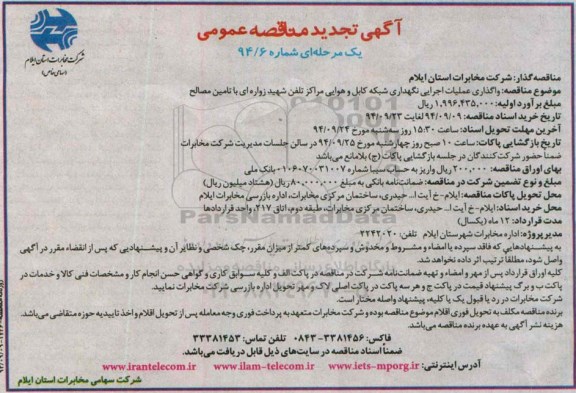 آگهی تجدید مناقصه عمومی
یک مرحله‌ای شماره ۹۴/۶
شرکت مخابرات استان ایلام
(سهامی خاص)
مناقصه گذار: شرکت مخابرات استان ایلام
موضوع مناقصه: واگذاری عملیات اجرایی نگهداری شبکه کابل و هوایی مراکز تلفن شهید زواره ای با تامین مصالح
مبلغ برآورد اولیه: ۱,۹۹۶,۴۳۵,۰۰۰ ریال
تاریخ خرید اسناد مناقصه: ۹۴/۰۹/۰۹ لغایت ۹۴/۰۹/۲۳
آخرین مهلت تحویل اسناد: ساعت ۱۵:۳۰ روز سه‌شنبه مورخ ۹۴/۰۹/۲۴
تاریخ بازگشایی پاکات: ساعت ۱۰ صبح روز چهارشنبه مورخ ۹۴/۰۹/۲۵ در سالن جلسات مدیریت شرکت مخابرات
ضمنا حضور شرکت‌کنندگان در جلسه بازگشایی پاکات (ج) بلامانع می‌باشد
بهای اوراق مناقصه: ۲۰۰,۰۰۰ ریال واریز به حساب سیبا شماره ۰۱۰۶۰۷۰۰۳۱۰۰۷ بانک ملی
مبلغ و نوع تضمین شرکت در مناقصه: ضمانت‌نامه بانکی به مبلغ ۸۰,۰۰۰,۰۰۰ ریال (هشتاد میلیون ریال)
محل تحویل پاکات مناقصه: ایلام - خ آیت ا... حیدری، ساختمان مرکزی مخابرات، اداره بازرسی مخابرات ایلام
محل خرید اسناد: ایلام - خ آیت ا... حیدری، ساختمان مرکزی مخابرات، طبقه دوم، اتاق ۲۱۷، واحد قراردادها
مدت قرارداد: ۱۲ ماه (یکسال)
مدیر پروژه: اداره مخابرات شهرستان ایلام تلفن: ۳۲۲۲۰۲۰
به پیشنهادهایی که فاقد سپرده یا امضاء و مشروط و مخدوش و سپرده‌های کمتر از میزان مقرر، چک شخصی و نظایر آن و پیشنهادیی که پس از انقضاء مقرر در آگهی
واصل شود، مطلقا ترتیب اثر داده نخواهد شد.
کلیه اوراق قرارداد پس از مهر و امضاء و تهیه ضمانت‌نامه شرکت در مناقصه در پاکت الف و کلیه سوابق کاری و گواهی حسن انجام کار و مشخصات فنی کالا و خدمات در
پاکت ب و برگ پیشنهاد قیمت در پاکت ج و هر سه پاکت در پاکت اصلی لاک و مهر تحویل اداره بازرسی شرکت مخابرات نمایید.
شرکت مخابرات در رد یا قبول یک یا کلیه، پیشنهاد واصله مختار است.
برنده مناقصه مکلف به تحویل فوری اقلام موضوع مناقصه بوده و شرکت مخابرات متعهد به پرداخت فوری وجه معامله پس از تحویل اقلام و اخذ تاییدیه حوزه متقاضی می‌باشد.
هزینه نشر آگهی به عهده برنده مناقصه می‌باشد.
فاکس: ۳۳۳۸۱۴۵۶-۰۸۴۳ تلفن تماس: ۳۳۳۸۱۴۵۳
ضمناً اسناد مناقصه در سایت‌های ذیل قابل دریافت می‌باشد.
آدرس اینترنتی: www.iets-mporg.ir www.ilam-telecom.ir www.irantelecom.ir
شرکت سهامی مخابرات استان ایلام
ParsNamadData